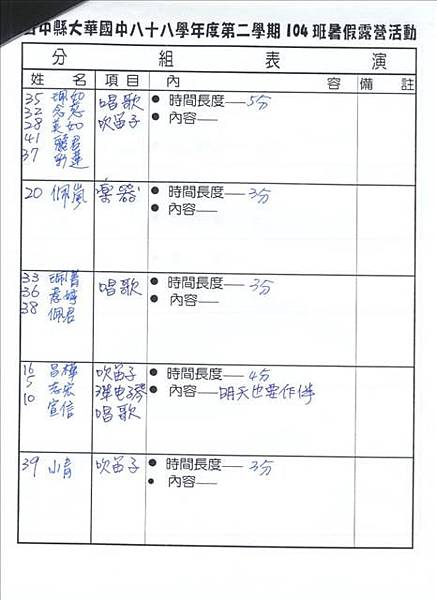 中縣大華國中八十八學年度第二學期104班暑假露營活動
分組表演
姓名 項目 內容 備註
35 珮如 唱歌 ●時間長度──5分
32 念慈 吹笛子 ●內容──
28 美如
41 麗君
37 彩蓮
20 佩嵐 樂器 ●時間長度──3分
●內容──
33 珮菁 唱歌 ●時間長度──3分
36 孝婷 ●內容──
38 佩君
16 昌樺 吹笛子 ●時間長度──4分
5 志宏 彈电子琴 ●內容──明天也要作伴
10 宣信 唱歌
39 小青 吹笛子 ●時間長度──3分
●內容──